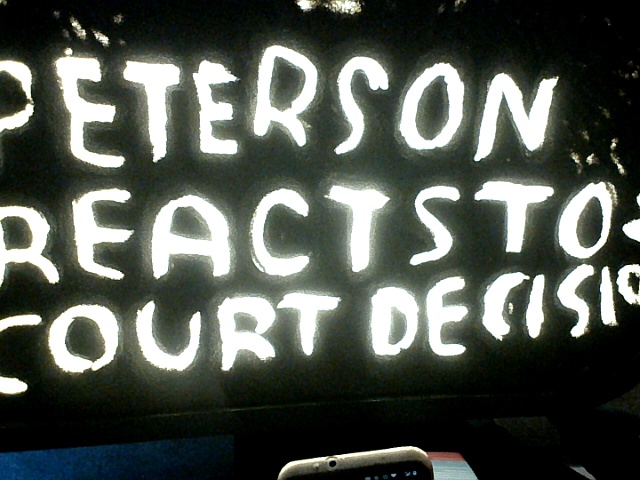 PETERSON
REACTS TO
COURT DECISIO